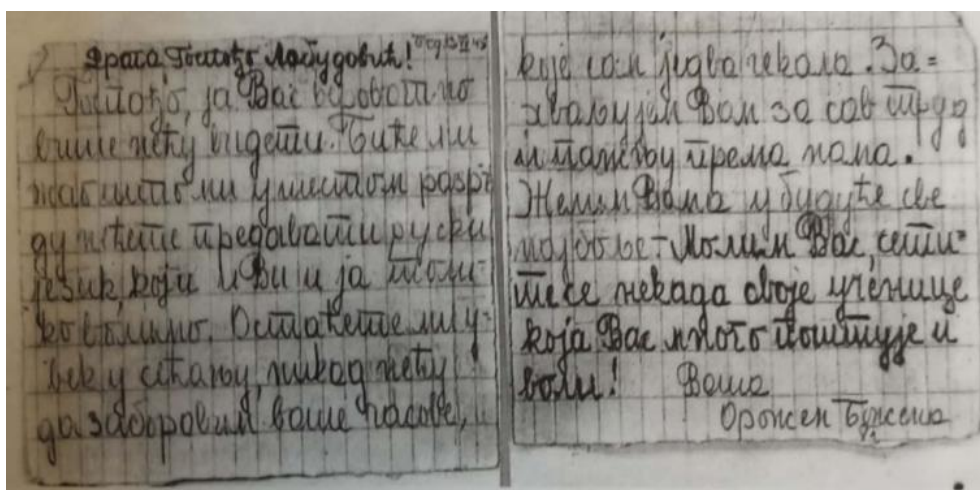 Драга Госпођо Лабудовић!
Госпођо, ја Вас вероватно
више нећу видети. Биће ми
жао што ми у шестом разре
ду нећете предавати руски
језик, који и Ви и ја толи-
ко волимо. Остаћете ми у-
век у сећању, никад нећу
да заборавим ваше часове,
које сам једва чекала. За=
хваљујем Вам за сав труд
и пажњу према нама.
Желим Вама у будуће све
најбоље - Молим Вас, сети=
те се некада своје ученице
која Вас много поштује и
воли! Ваша
Орожен Божена